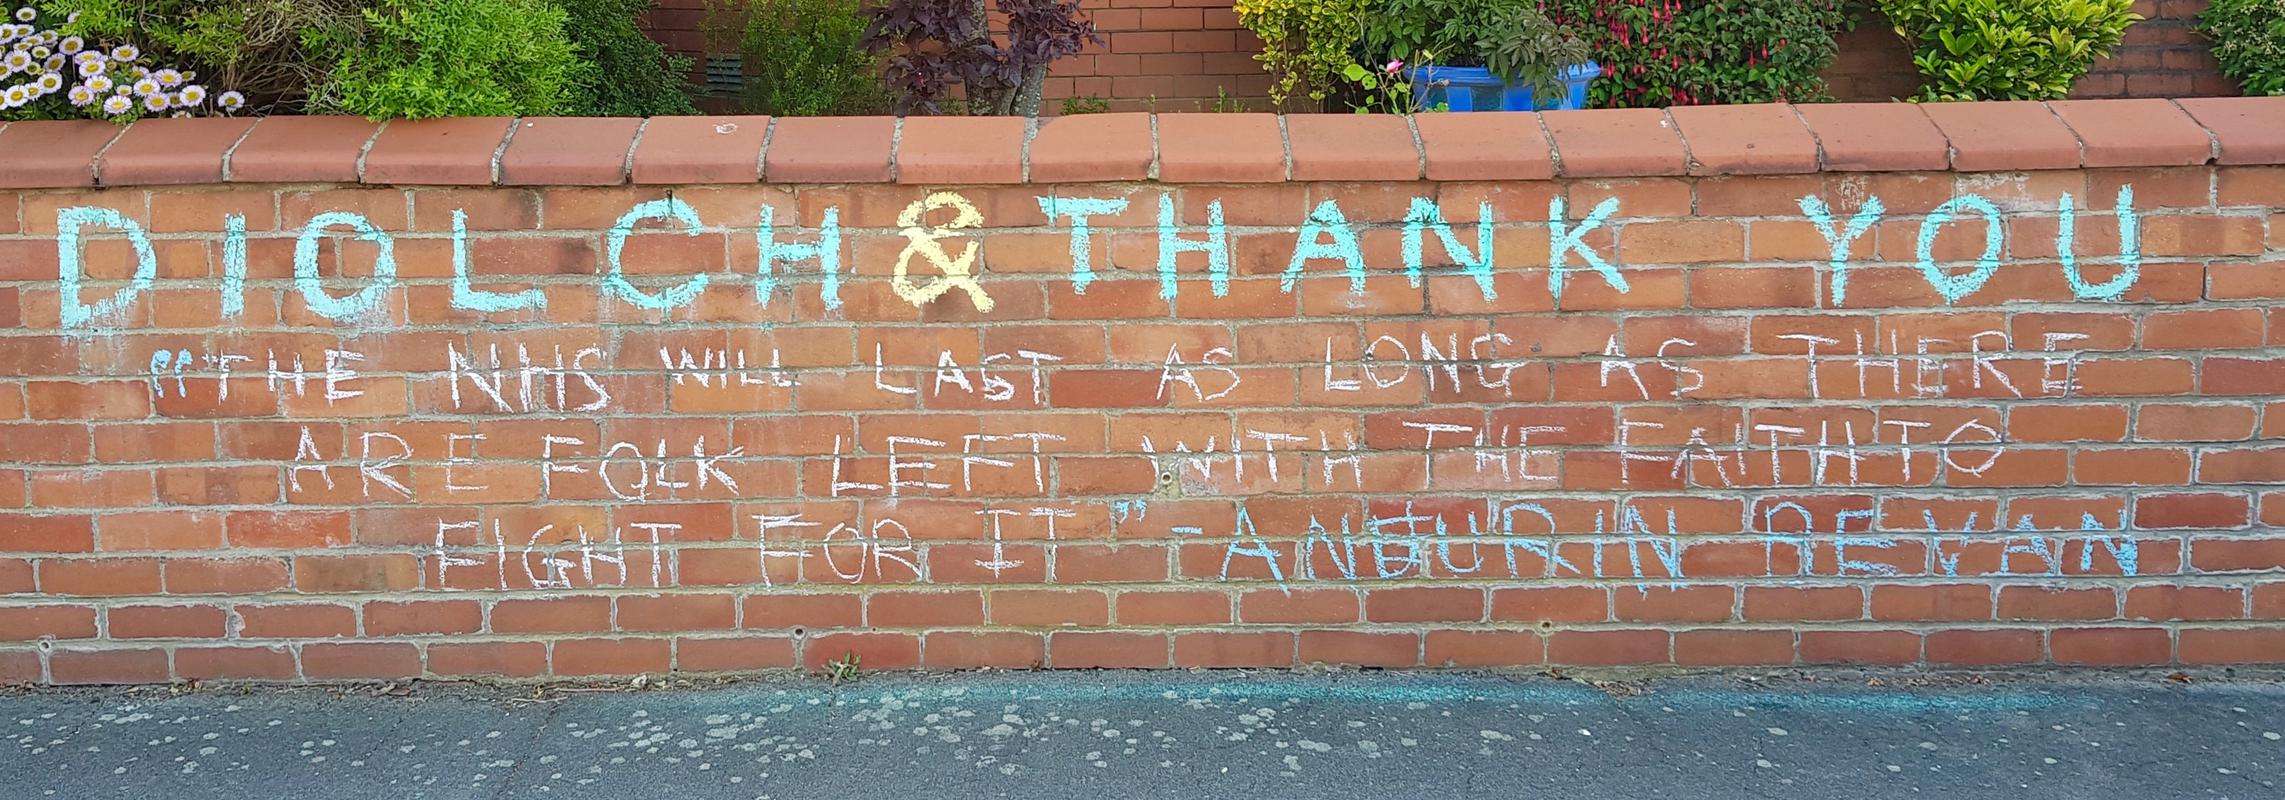 DIOLCH & THANK YOU
"THE NHS WILL LAST AS LONG AS THERE
ARE FOLK LEFT WITH THE FAITH TO
FIGHT FOR IT" - ANEURIN BEVAN